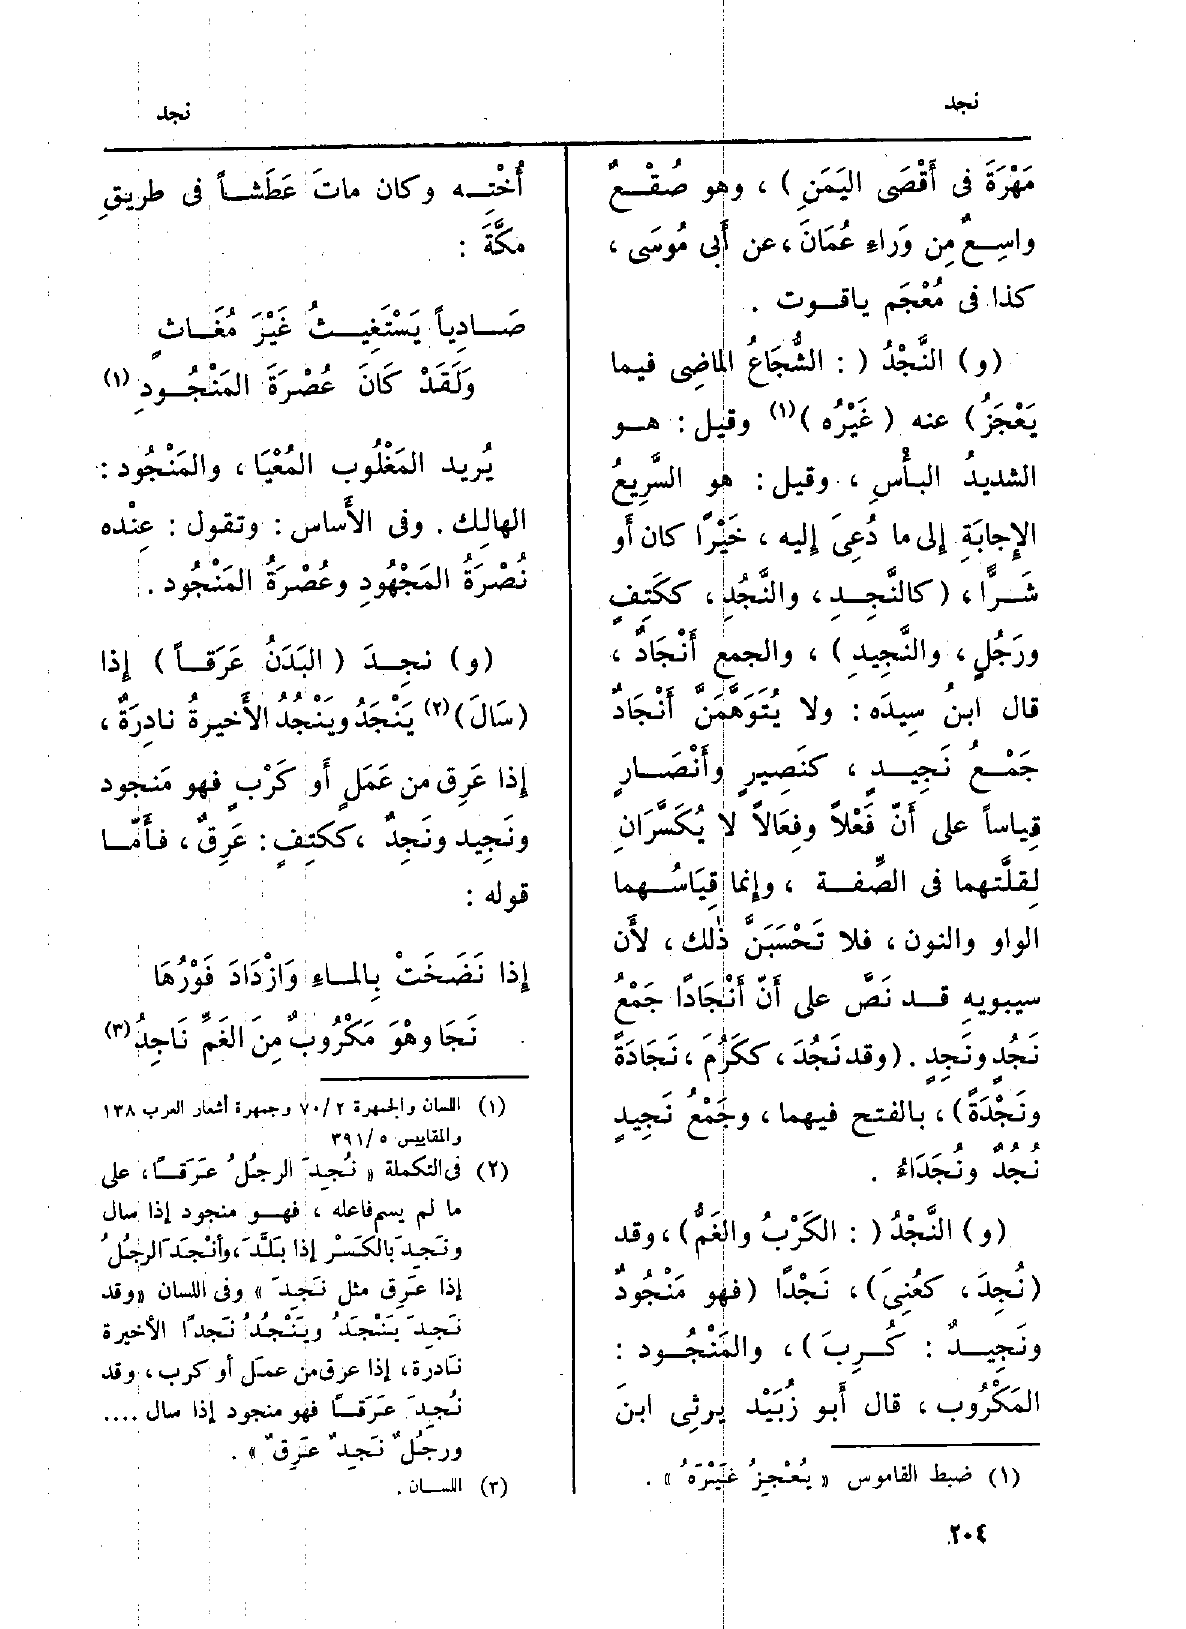 نجد
نجد
مَهْرَةَ فى أَقْصَى اليَمَنِ ) ، وهو صُقْـعٌ
واسِـعٌ مِن وَرَاءِ عُمَانَ ، عن أَبى مُوسَى ،
كذا فى مُعْجَم ياقـوت .
(و) النَّجْدُ ( : الشُّجَاعُ المَاضِى فيما
يَعْجَزُ) عنه ( غَيْرُه )(١) وقيل : هـو
الشديدُ البـأْسِ ، وقيل : هو السَّرِيعُ
الإِجابَةِ إِلى ما دُعِىَ إِليه ، خَيْرًا كان أَو
شَـرًّا ، ( كالنَّجِـدِ ، والنَّجُدِ ، ككَتِفٍ
ورَجُلٍ ، والنَّجِيدِ ) ، والجمع أَنْجَادٌ ،
قال ابنُ سِيدَه : ولا يُتَوَهَّمَنَّ أَنْجَادٌ
جَمْـعُ نَجِيـدٍ ، كنَصِيرٍ وأَنْصَـارٍ
قِياساً على أَنّ فَعْلاً وفِعَالاً لا يُكَسَّرَانِ
لِقلَّتهما فى الصِّفـة ، وإِنما قِيَاسُـهما
الواو والنون ، فلا تَحْسَبَنَّ ذٰلك ، لأَن
سيبويه قـد نَصَّ على أَنّ أَنْجَادًا جَمْعُ
نَجُدٍ ونَجِدٍ . (وقد نَجُدَ ، ككَرُمَ ، نَجَادَةً
ونَجْدَةً) ، بالفتح فيهما ، وجَمْعُ نَجِيدٍ
نُجُدٌ ونُجَدَاءُ .
(و) النَّجْدُ ( : الكَرْبُ والغَمُّ) ، وقد
(نُجِدَ ، كعُنِىَ) ، نَجْدًا (فهو مَنْجُودٌ
ونَجِيـدٌ : كُـرِبَ ) ، والمَنْجُـود :
المَكْرُوب ، قال أَبو زُبَيْد يرثِى ابنَ
(١) ضبط القاموس « يُعْجِزُ غَيْرَهُ » .
أُخْتِـه وكان ماتَ عَطَشـاً فى طريقِ
مكَّةَ :
صَـادِياً يَسْتَغِيـثُ غَيْرَ مُغَـاثٍ
وَلَقَدْ كَانَ عُصْرَةَ المَنْجُـودِ (١)
يُريد المَغْلُوب المُعْيَا ، والمَنْجُود :
الهالِك . وفى الأَساس : وتقول : عِنْده
نُصْرَةُ المَجْهُودِ وعُصْرَةُ المَنْجُود .
(و) نجِـدَ ( البَدَنُ عَرَقـاً ) إِذا
(سَالَ)(٢) يَنْجَدُ ويَنْجُدُ الأَخيرةُ نادِرَةٌ ،
إِذا عَرِق من عَمَلٍ أَو كَرْبٍ فهو مَنجود
ونَجِيد ونَجِدٌ ، ككتِفٍ : عَرِقٌ ، فـأَمَّـا
قوله :
إِذا نَضَخَتْ بِالمـاءِ وَازْدَادَ فَوْرُهَا
نَجَا وهْوَ مَكْرُوبٌ مِنَ الغَمِّ نَاجِدُ (٣)
(١) اللسان والجمهرة ٢ /٧٠ وجمهرة أشعار العرب ١٣٨
والمقاييس ٥ /٣٩١
(٢) فى التكملة « نُجِدَ الرجُلُ عَرَقـًا ، على
ما لم يسم فاعله ، فهـو منجود إذا سال
ونَجِدَ بالكَسْر إذا بَلَّدَ ، وأنْجَدَ الرجُلُ
إذا عَرِق مثل نَجِدَ » وفى اللسان «وقد
نَجِدَ يَنْجَدُ ويَنْجُدُ نَجَدًا الأخيرة
نادرة ، إذا عرق من عمل أو كرب ، وقد
نُجِدَ عَرَقـًا فهو منجود إذا سال ....
ورجُلٌ نَجِدٌ عَرِقٌ » .
(٣) اللسـان .
٢٠٤